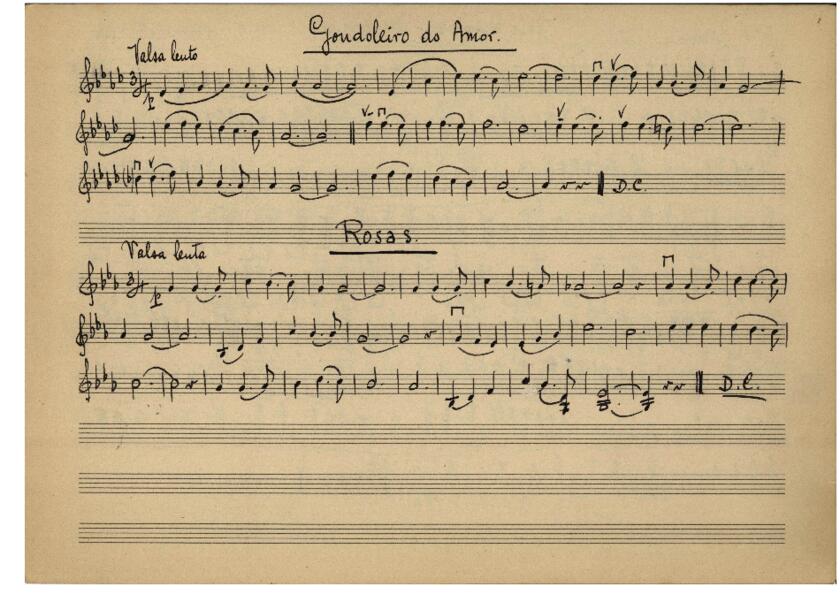 Gondoleiro do Amor.
Valsa lento
p
D.C.
Rosas.
Valsa lenta
p
D.C.